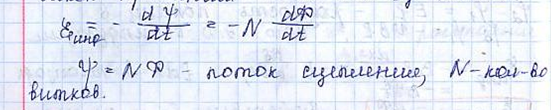 ℰинд = - dΨ/dt = -N dФ/dt
Ψ = NФ - поток сцепления, N-кол-во
витков.